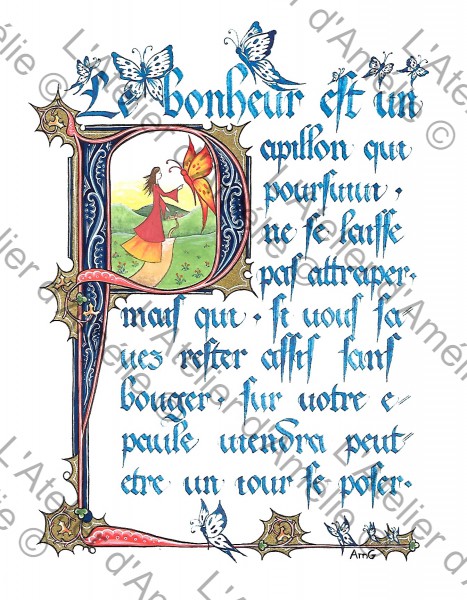 Le bonheur est un
Papillon qui
poursuivi ·
ne se laisse
pas attraper ·
mais qui · si vous sa=
vez rester assis sans
bouger · sur votre e=
paule viendra peut=
etre un jour se poser ·
AmG
L'Atelier d'Amélie ©